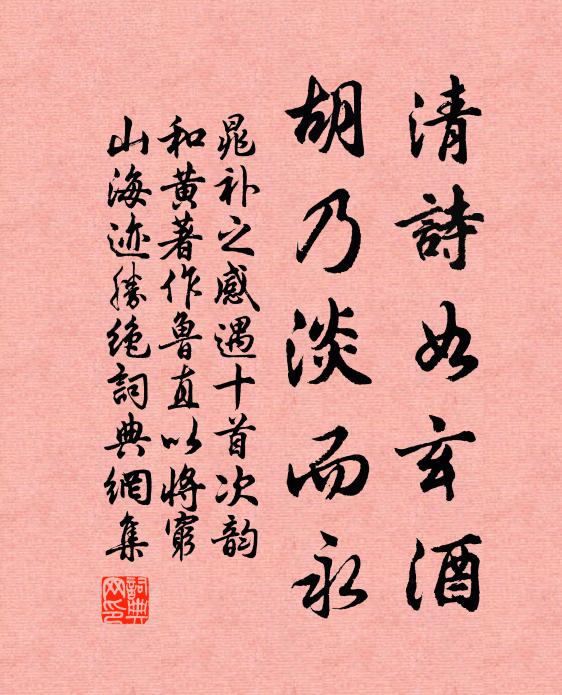 清詩如玄酒
胡乃淡而永
晁补之感遇十首次韵
和黄著作鲁直以将穷
山海迹勝绝詞典網集
詞典网印